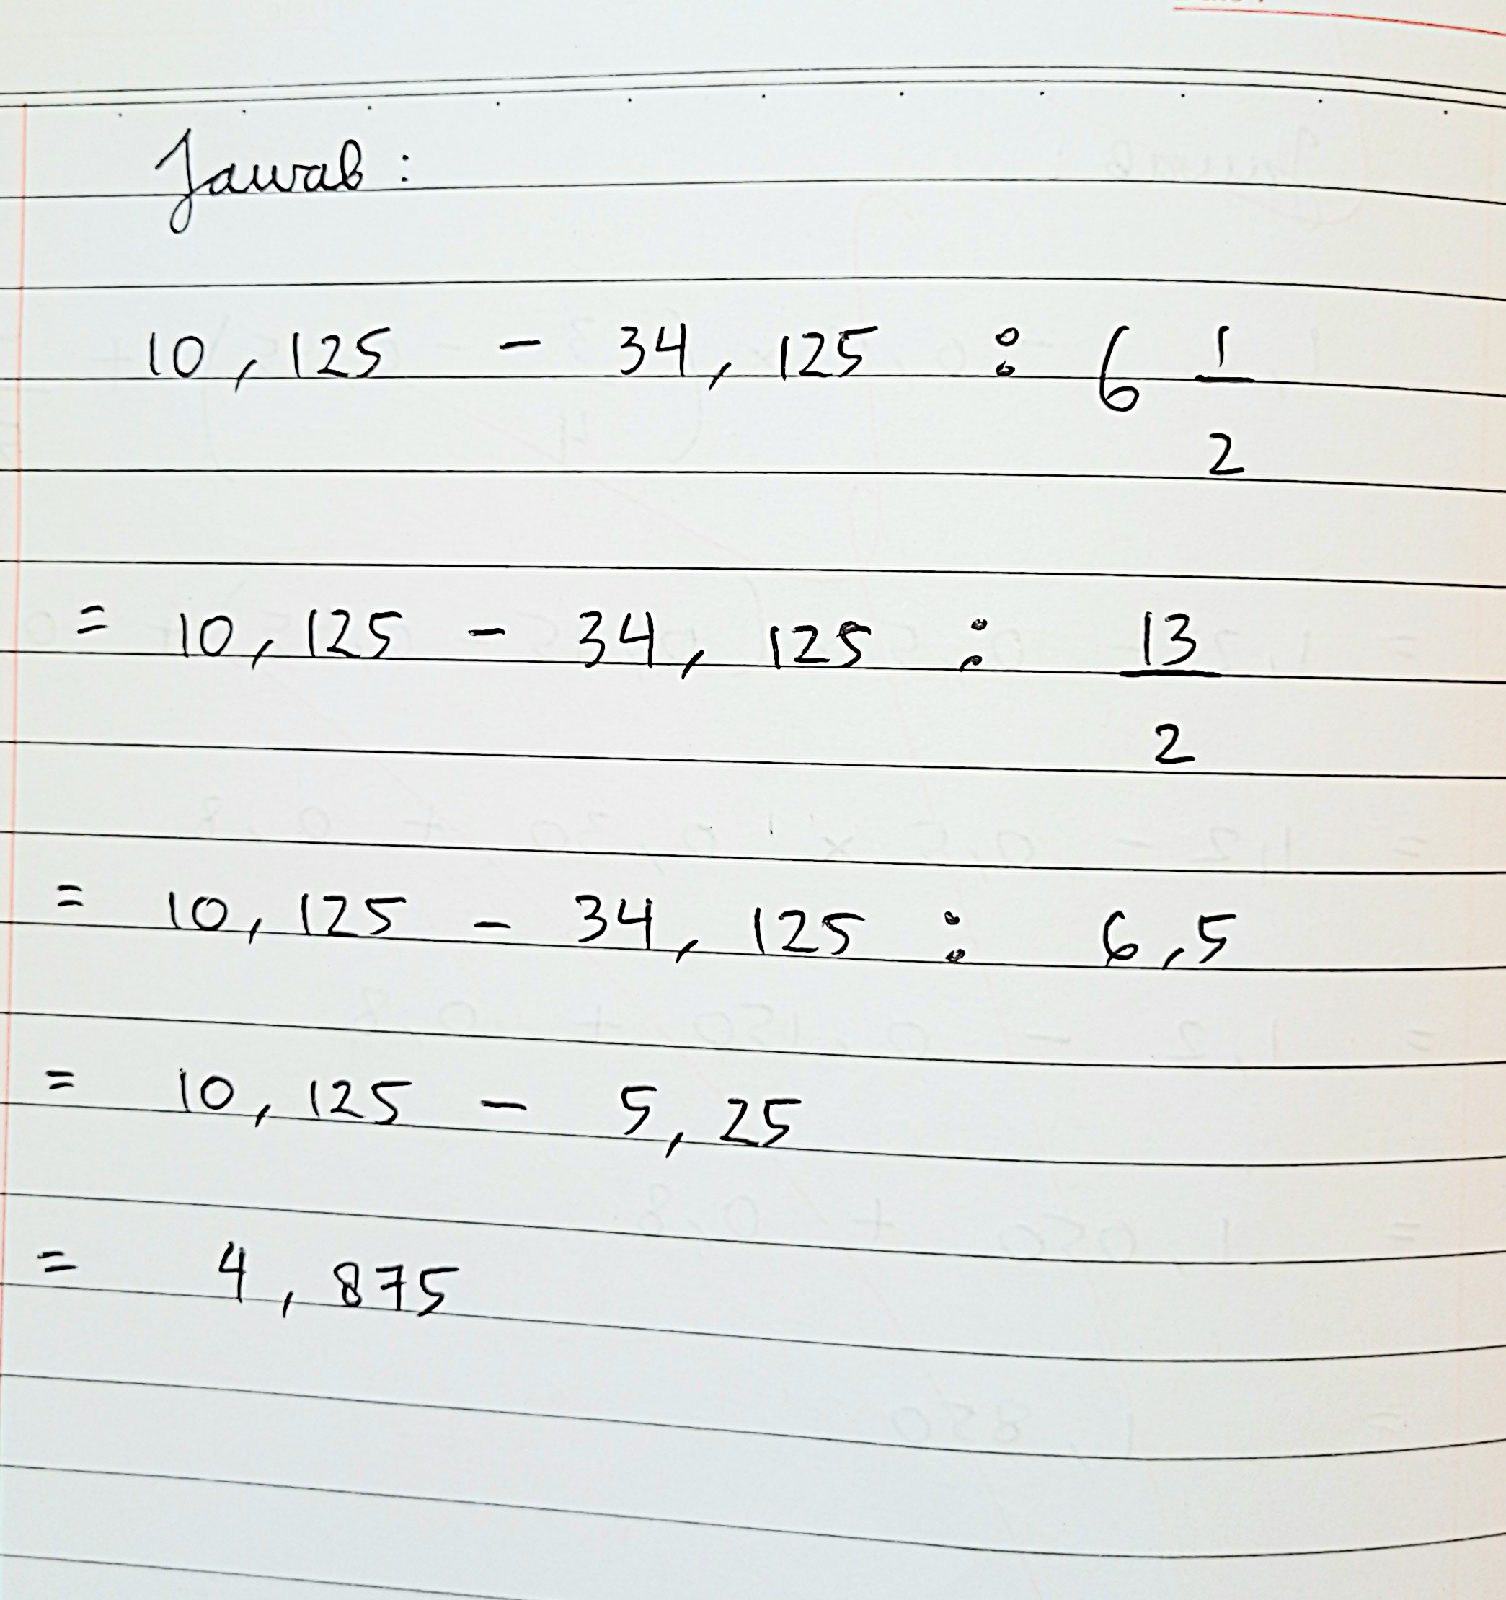 Jawab :
10,125 - 34,125 : 6 1/2
= 10,125 - 34,125 : 13/2
= 10,125 - 34,125 : 6,5
= 10,125 - 5,25
= 4,875